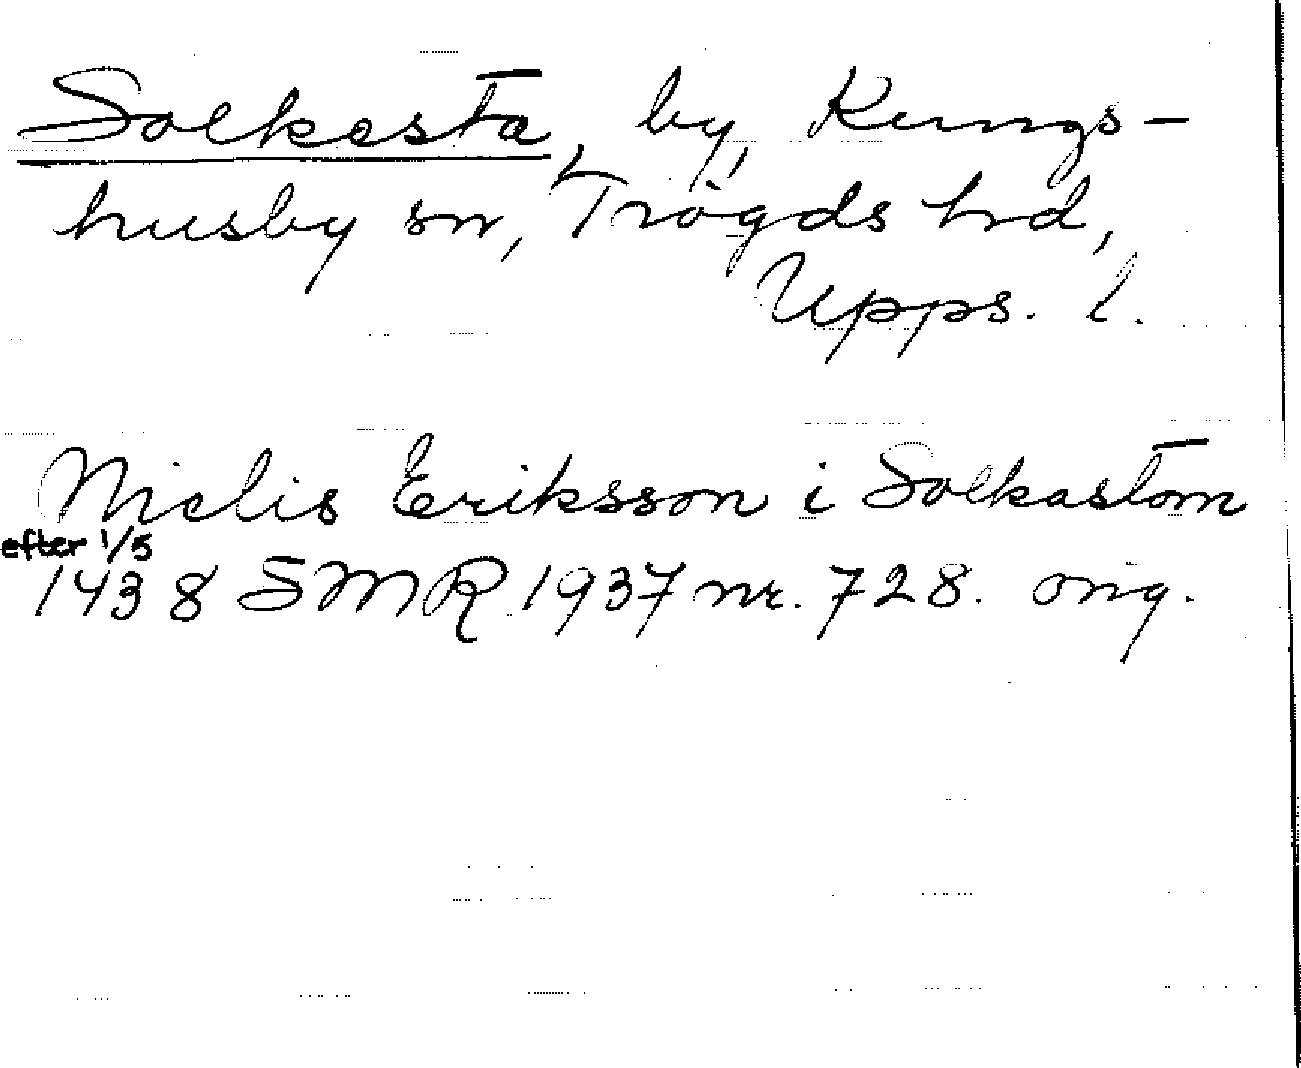 Solkasta, by, Kungs-
husby sn, Trögds hrd,
Upps. l.
Nielis Eriksson i Solkastom
efter 1/5
1438 SMR 1937 nr. 728. orig.